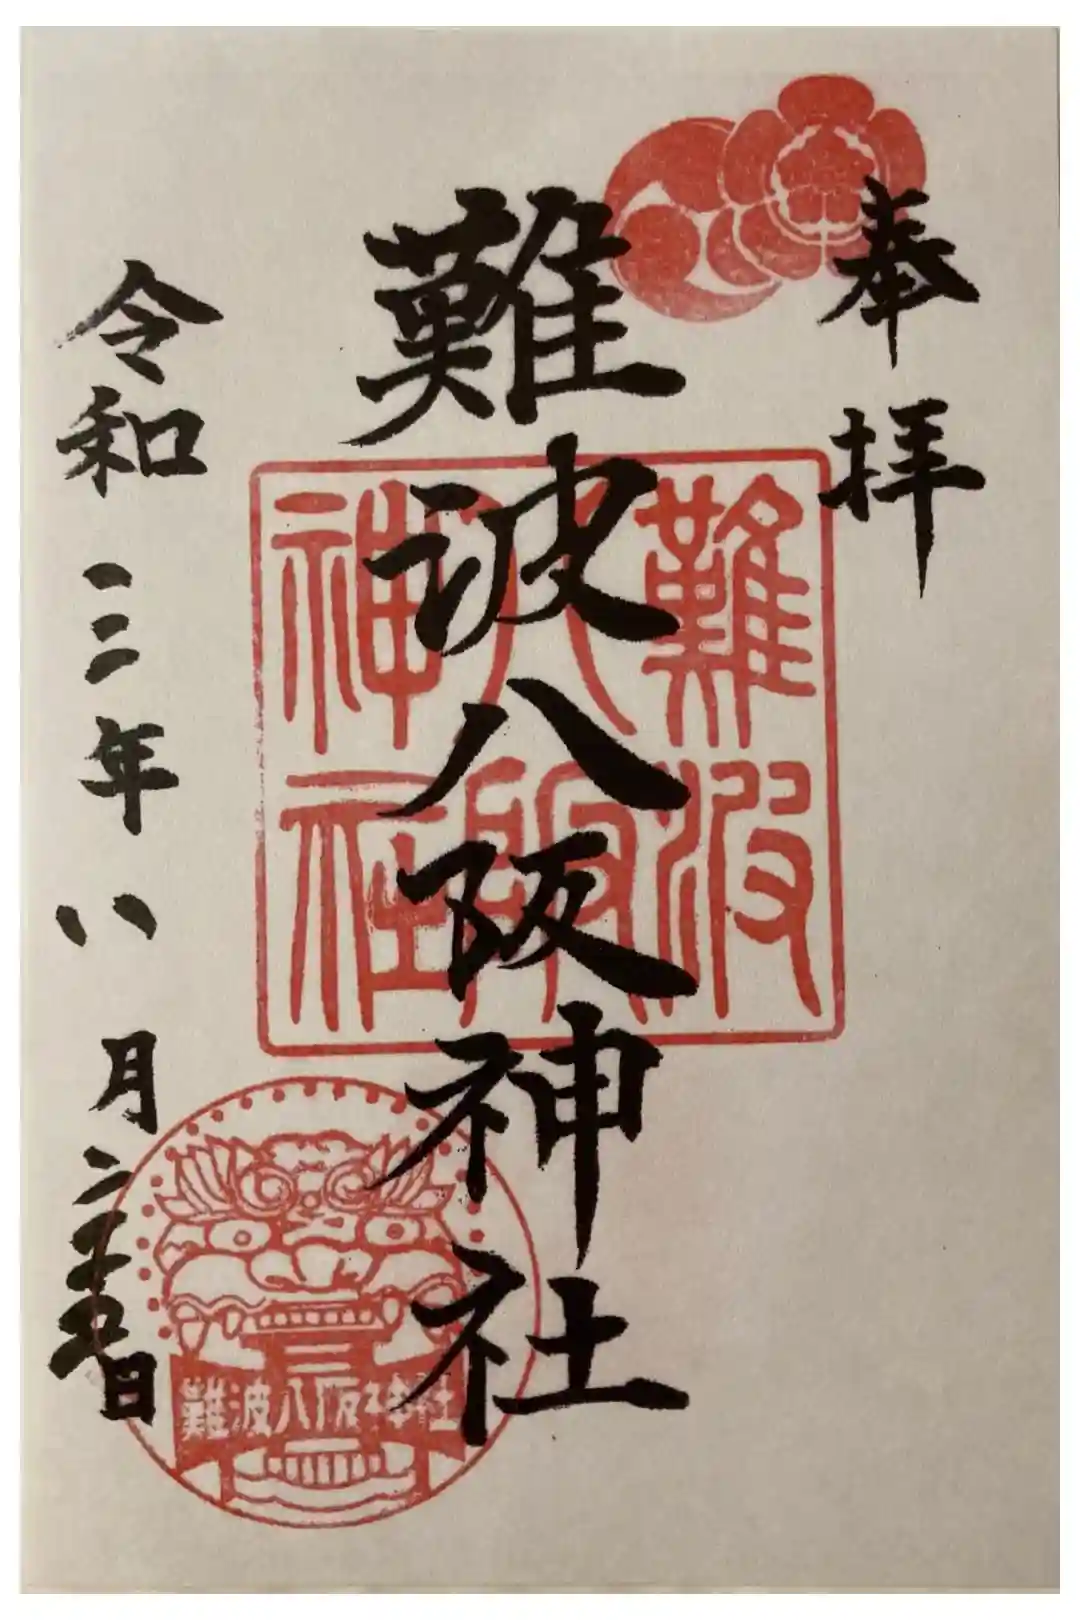 奉拝
難波八阪神社
難波
八阪
神社
令和三年八月二十五日
難波八阪神社